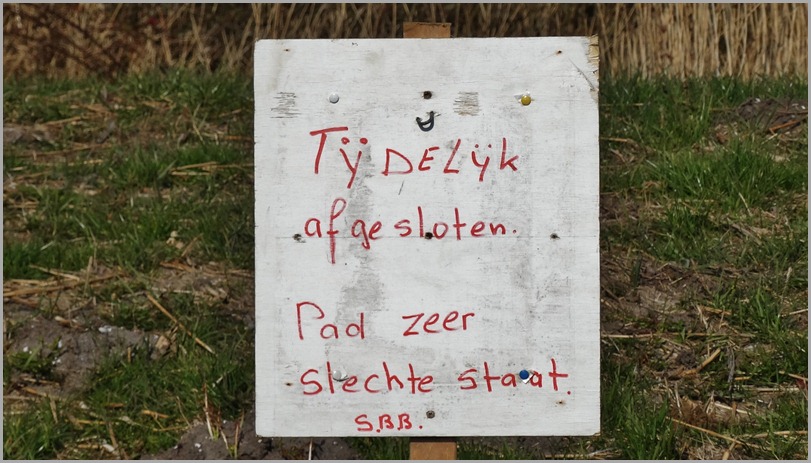 Tÿ DELÿk
afgesloten.
Pad zeer
slechte staat.
S.B.B.